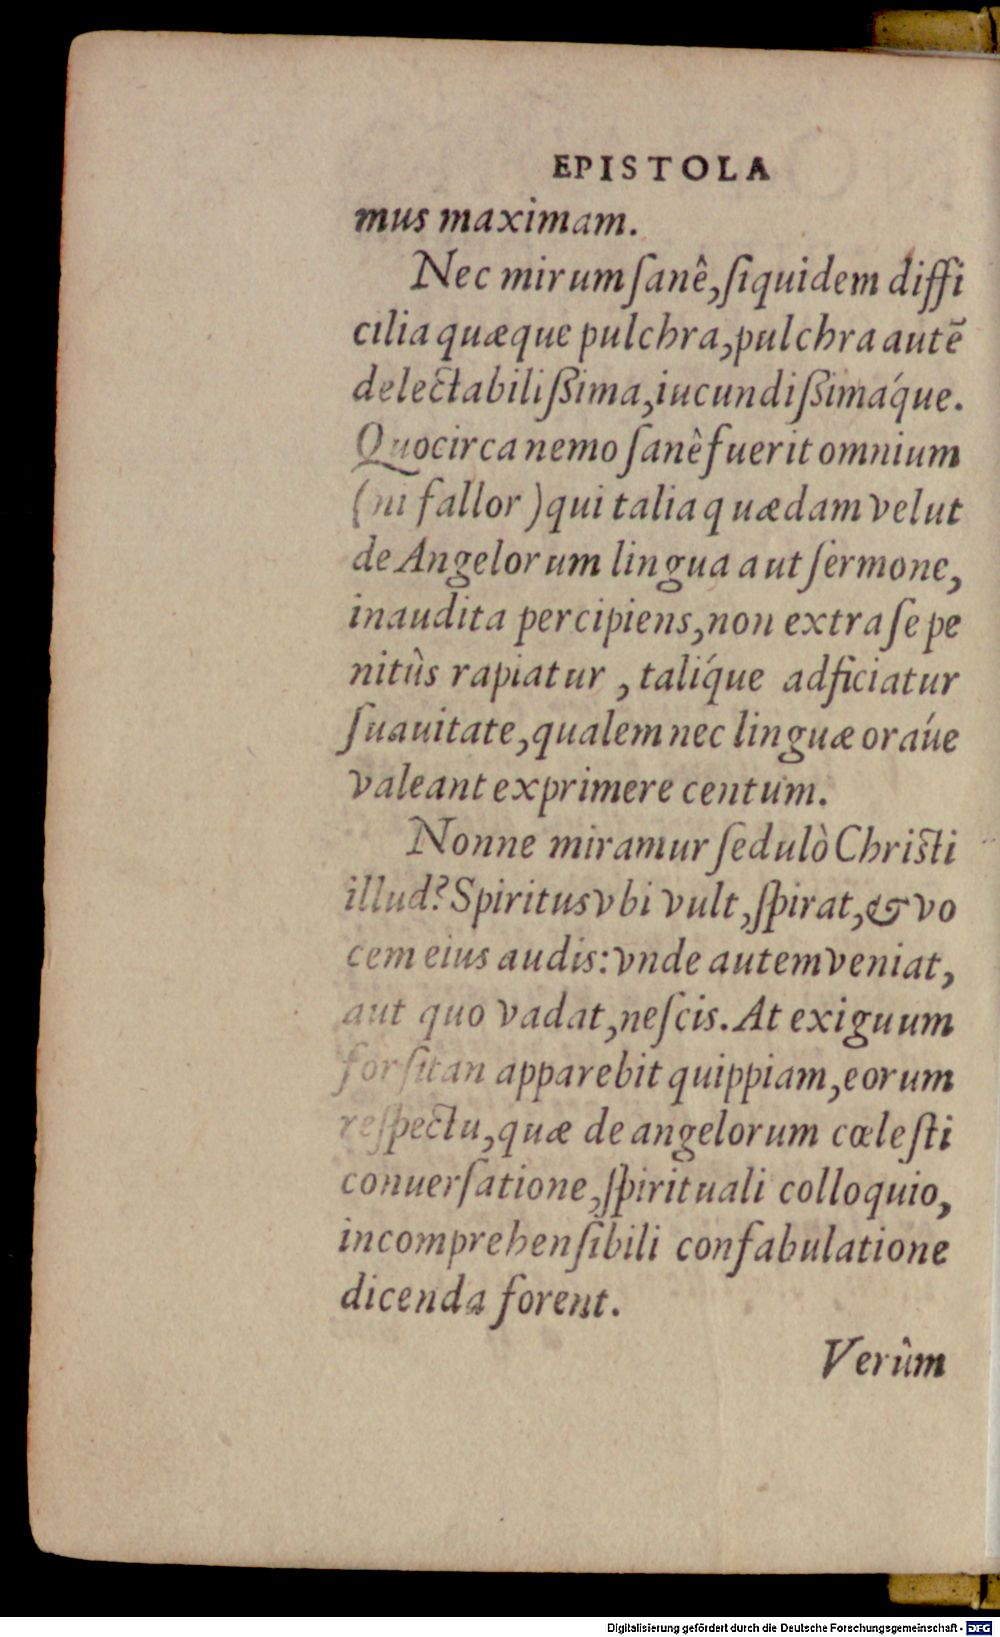 EPISTOLA
mus maximam.
Nec mirum ſanê, ſiquidem diffi
cilia quæque pulchra, pulchra autē
delectabiliſſima, iucundiſſimáque.
Quocirca nemo ſanê fuerit omnium
(ni fallor) qui talia quædam velut
de Angelorum lingua aut ſermone,
inaudita percipiens, non extra ſe pe
nitùs rapiatur, talíque adficiatur
ſuauitate, qualem nec linguæ oráue
valeant exprimere centum.
Nonne miramur ſedulò Chriſti
illud? Spiritus vbi vult, ſpirat, & vo
cem eius audis: vnde autem veniat,
aut quo vadat, neſcis. At exiguum
forſitan apparebit quippiam, eorum
reſpectu, quæ de angelorum cœleſti
conuerſatione, ſpirituali colloquio,
incomprehenſibili confabulatione
dicenda forent.
Verûm
Digitalisierung gefördert durch die Deutsche Forschungsgemeinschaft - DFG